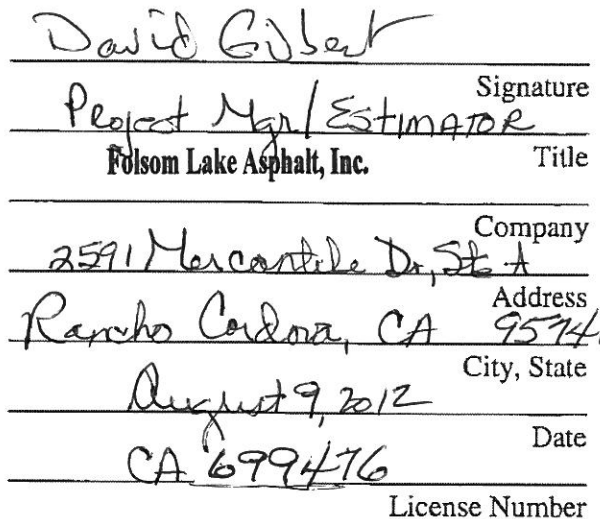 David Gilbert
Signature
Project Mgr/ESTIMATOR
Title
Folsom Lake Asphalt, Inc.
Company
2591 Mercantile Dr, Ste A
Address
Rancho Cordova, CA 9574
City, State
August 9, 2012
Date
CA 699476
License Number